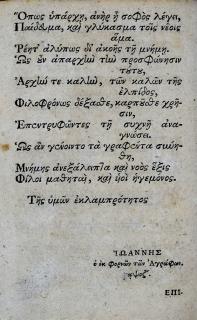 Ὅπως ὑπάρχῃ, ἀνὴρ ἢ σοφὸς λέγει,
Παίδευμα, καὶ γλύκασμα τοῖς νέοις
ἅμα.
Ῥέῃτ' ἀλύπως δι' ἀκοῆς τῇ μνήμῃ.
Ὡς ἂν ἀπαρχίω τίω προσφώνησιν
τότε,
Ἀρχίω τε καλίω, τῶν καλῶν τῆς
ἐλπίδος,
Φιλοφρόνως δέξαιθε, καρπῶθε χρῆ-
σιν,
Ἐπεντρυφῶντες τῇ συχνῇ ἀνα-
γνώσει.
Ὡς ἂν γένοιντο τὰ γραφέντα συμή-
θη,
Μνήμης ἀνεξάλειπτα καὶ νοὸς ἕξις
Φίλοι μαθηταὶ, καὶ υἱοὶ ἡγεμόνος.
Τῆς ὑμῶν ἐκλαμπρότητος
ΙΩΑΝΝΗΣ
ὁ ἐκ φορνῶν τῶν Ἀγράφων.
ΕΠΙ-